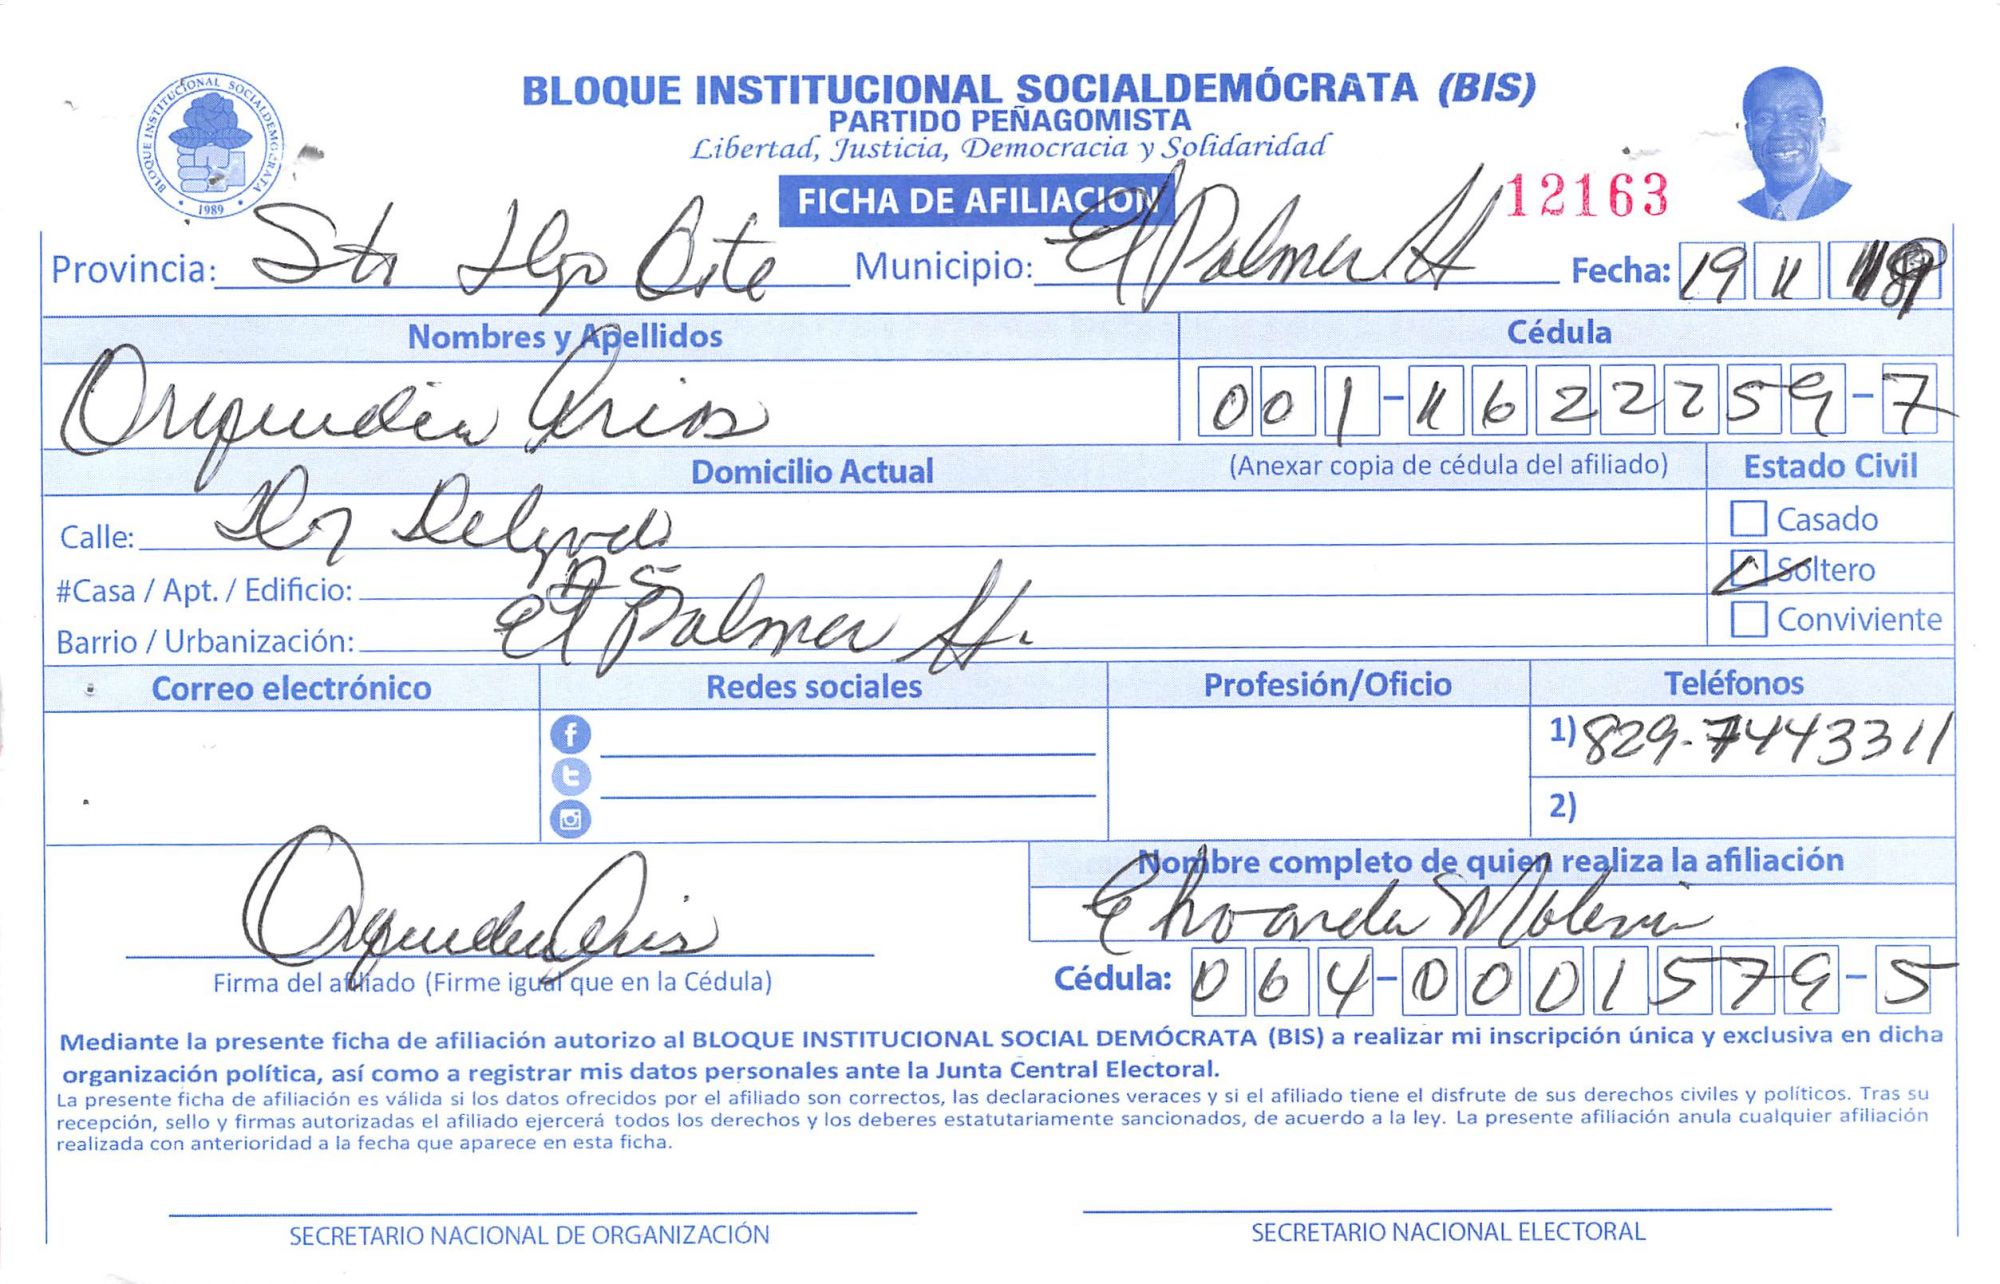 BLOQUE INSTITUCIONAL SOCIALDEMÓCRATA (BIS)
PARTIDO PEÑAGOMISTA
Libertad, Justicia, Democracia y Solidaridad
BLOQUE INSTITUCIONAL SOCIALDEMOCRATA
1989
FICHA DE AFILIACION
12163
Provincia: Sto Dgo Oste Municipio: El Palmar H Fecha: 19 11 18
Nombres y Apellidos Cédula
Orquidea Arias 001-1622259-7
Domicilio Actual (Anexar copia de cédula del afiliado) Estado Civil
Calle: Delgado Casado
#Casa / Apt. / Edificio: Soltero
Barrio / Urbanización: El Palmar H. Conviviente
Correo electrónico Redes sociales Profesión/Oficio Teléfonos
1) 829-7443311
2)
Nombre completo de quien realiza la afiliación
Orquidea Arias
Firma del afiliado (Firme igual que en la Cédula) Cédula: 064-0001579-5
Mediante la presente ficha de afiliación autorizo al BLOQUE INSTITUCIONAL SOCIAL DEMÓCRATA (BIS) a realizar mi inscripción única y exclusiva en dicha
organización política, así como a registrar mis datos personales ante la Junta Central Electoral.
La presente ficha de afiliación es válida si los datos ofrecidos por el afiliado son correctos, las declaraciones veraces y si el afiliado tiene el disfrute de sus derechos civiles y políticos. Tras su
recepción, sello y firmas autorizadas el afiliado ejercerá todos los derechos y los deberes estatutariamente sancionados, de acuerdo a la ley. La presente afiliación anula cualquier afiliación
realizada con anterioridad a la fecha que aparece en esta ficha.
SECRETARIO NACIONAL DE ORGANIZACIÓN SECRETARIO NACIONAL ELECTORAL